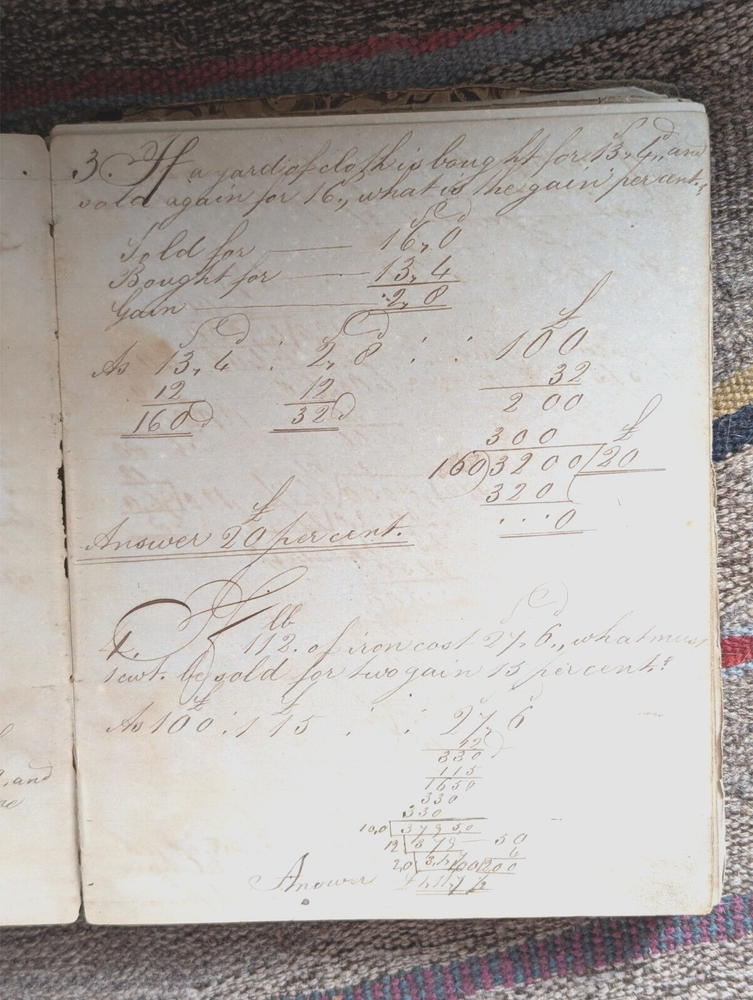 s d
3. If a yard of cloth is bought for 13,,4,, and
sold again for 16,, what is the gain per cent.?
s d
Sold for 16,,0
Bought for 13,,4
Gain 2,,8
s d s d £
As 13,,4 : 2,,8 : : 100
12 12 32
160d 32d 200
300 £
160)3200(20
320
...0
£
Answer 20 per cent.
lb s d
4. If 112. of iron cost 27,,6,, what must
1 cwt. be sold for two gain 15 per cent.?
£ £ s d
As 100 : 115 : : 27,,6
12
330
115
1650
330
330
100 37950
12 379 50
20 4
100 200
Answer
, and